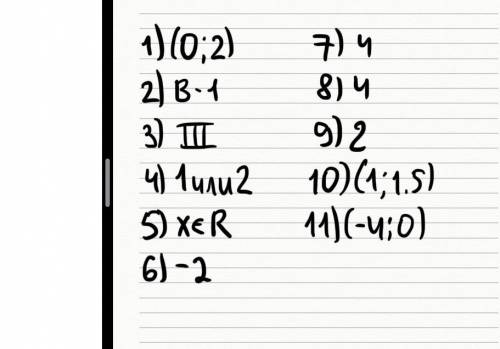 1) (0;2)
2) В-1
3) III
4) 1 или 2
5) x∈R
6) -2
7) 4
8) 4
9) 2
10) (1;1.5)
11) (-4;0)